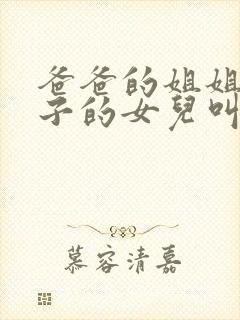 爸爸的姐姐
子的女兒叫
慕容清嘉